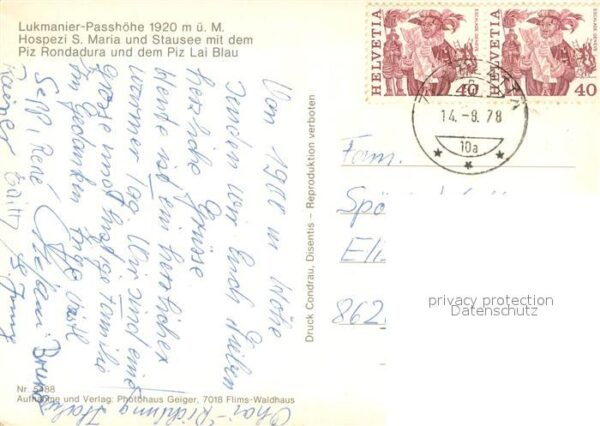 Lukmanier-Passhöhe 1920 m ü. M.
Hospezi S. Maria und Stausee mit dem
Piz Rondadura und dem Piz Lai Blau
HELVETIA
40
HELVETIA
40
14.-9.78
10a
Von 1900 m Höhe
senden wir Euch lieben
herzliche Grüsse
Heute ist ein herrlicher
warmer Tag. Wir sind eine
grosse und lustige Familie
In Gedanken
Sepp, René
Rainer
Fam.
Spö
Eli
862
Druck Condrau, Disentis – Reproduktion verboten
privacy protection
Datenschutz
Nr. 5488
Aufnahme und Verlag: Photohaus Geiger, 7018 Flims-Waldhaus